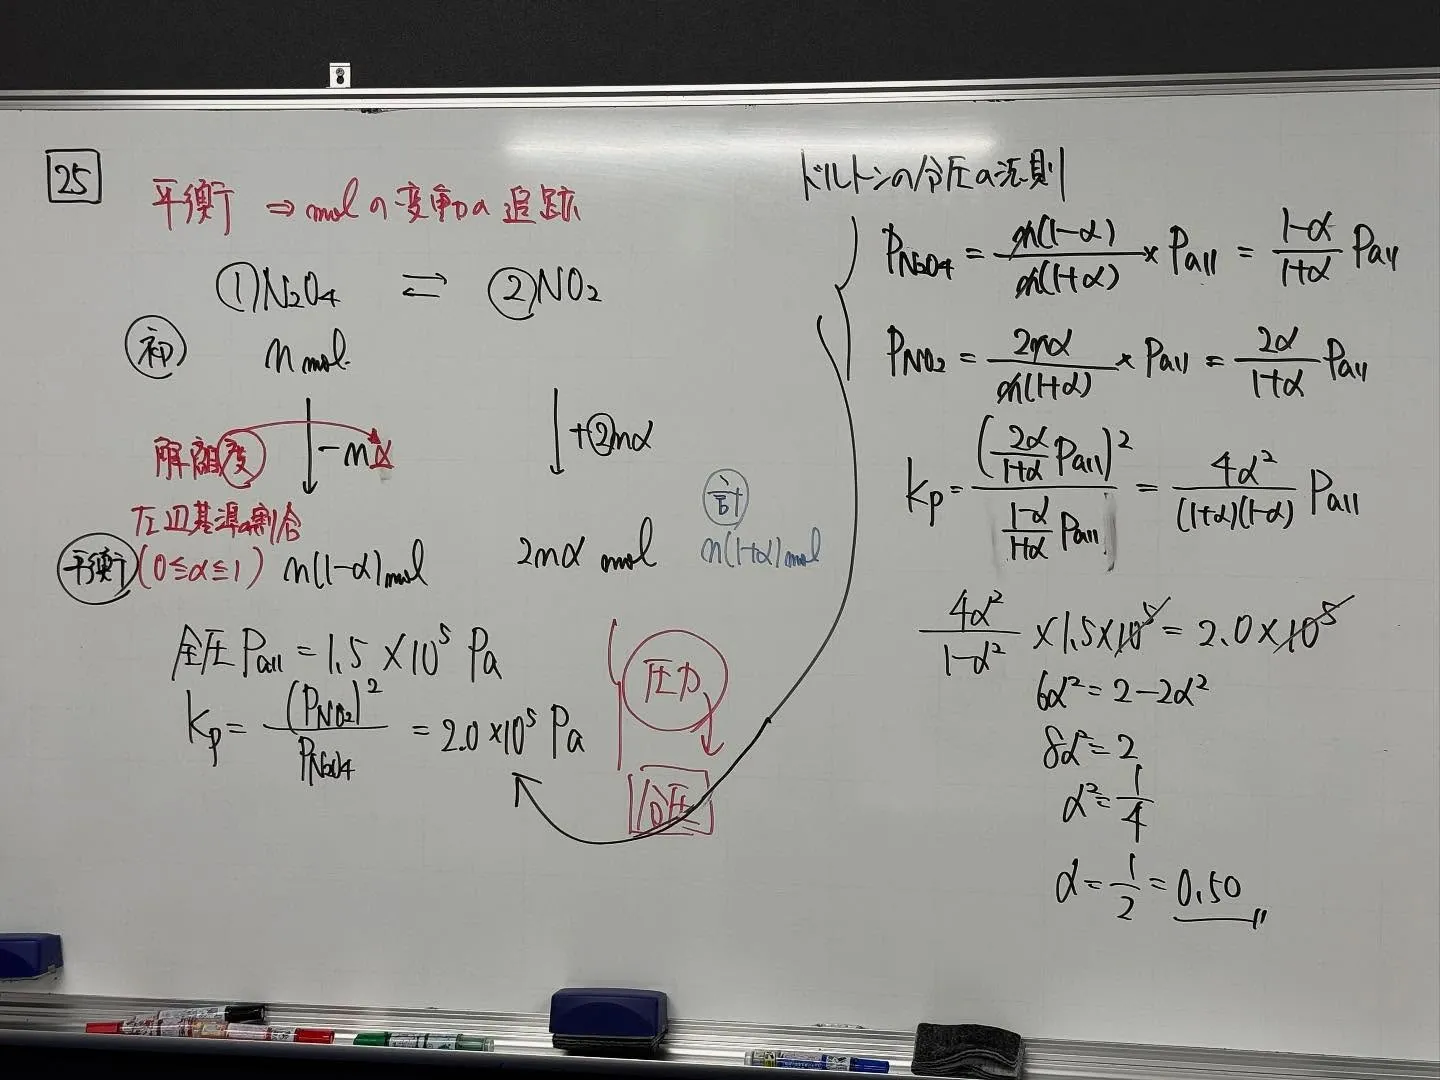 25
平衡 ⇒ molの変動の追跡
①N₂O₄ ⇄ ②NO₂
初 n mol
解離度 -nα +②nα
左辺基準の割合
計
平衡 (0≦α≦1) n(1-α)mol 2nα mol n(1+α)mol
全圧 Pall = 1.5×10⁵ Pa
Kp = (P_NO₂)² / P_N₂O₄ = 2.0×10⁵ Pa
圧力
分圧
ドルトンの分圧の法則
P_N₂O₄ = n(1-α) / n(1+α) × Pall = 1-α / 1+α Pall
P_NO₂ = 2nα / n(1+α) × Pall = 2α / 1+α Pall
Kp = (2α / 1+α Pall)² / (1-α / 1+α Pall) = 4α² / (1+α)(1-α) Pall
4α² / 1-α² ×1.5×10⁵ = 2.0×10⁵
6α² = 2-2α²
8α² = 2
α² = 1/4
α = 1/2 = 0.50